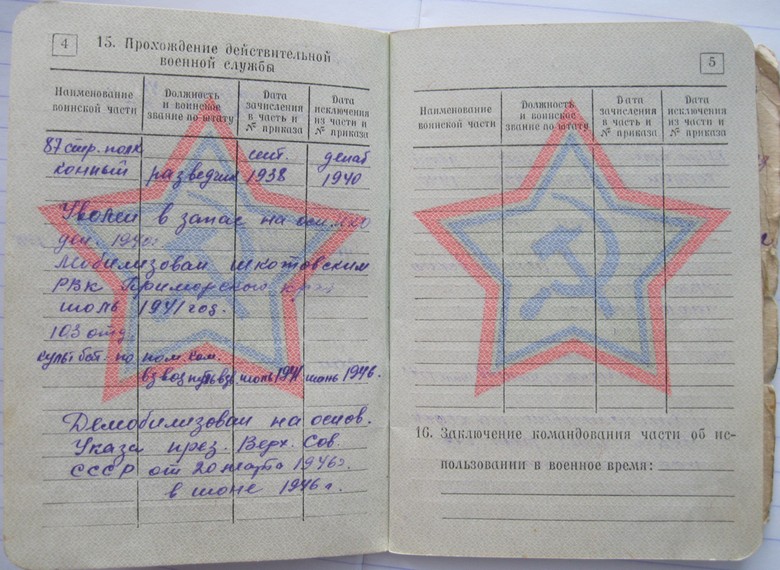 4
15. Прохождение действительной
военной службы
Наименование воинской части
Должность и воинское звание по штату
Дата зачисления в часть и № приказа
Дата исключения из части и № приказа
87 стр. полк сент. декаб
конный разведчик 1938 1940
Уволен в запас на осн.
дек. 1940г.
Мобилизован Шкотовским
РВК Приморского края
июль 1941 год.
103 отд.
бат. пом. ком.
взвод июль 1941 июнь 1946.
Демобилизован на основ.
Указа през. Верх. Сов.
СССР от 20 марта 1946г.
в июне 1946 г.
5
Наименование воинской части
Должность и воинское звание по штату
Дата зачисления в часть и № приказа
Дата исключения из части и № приказа
16. Заключение командования части об ис-
пользовании в военное время: